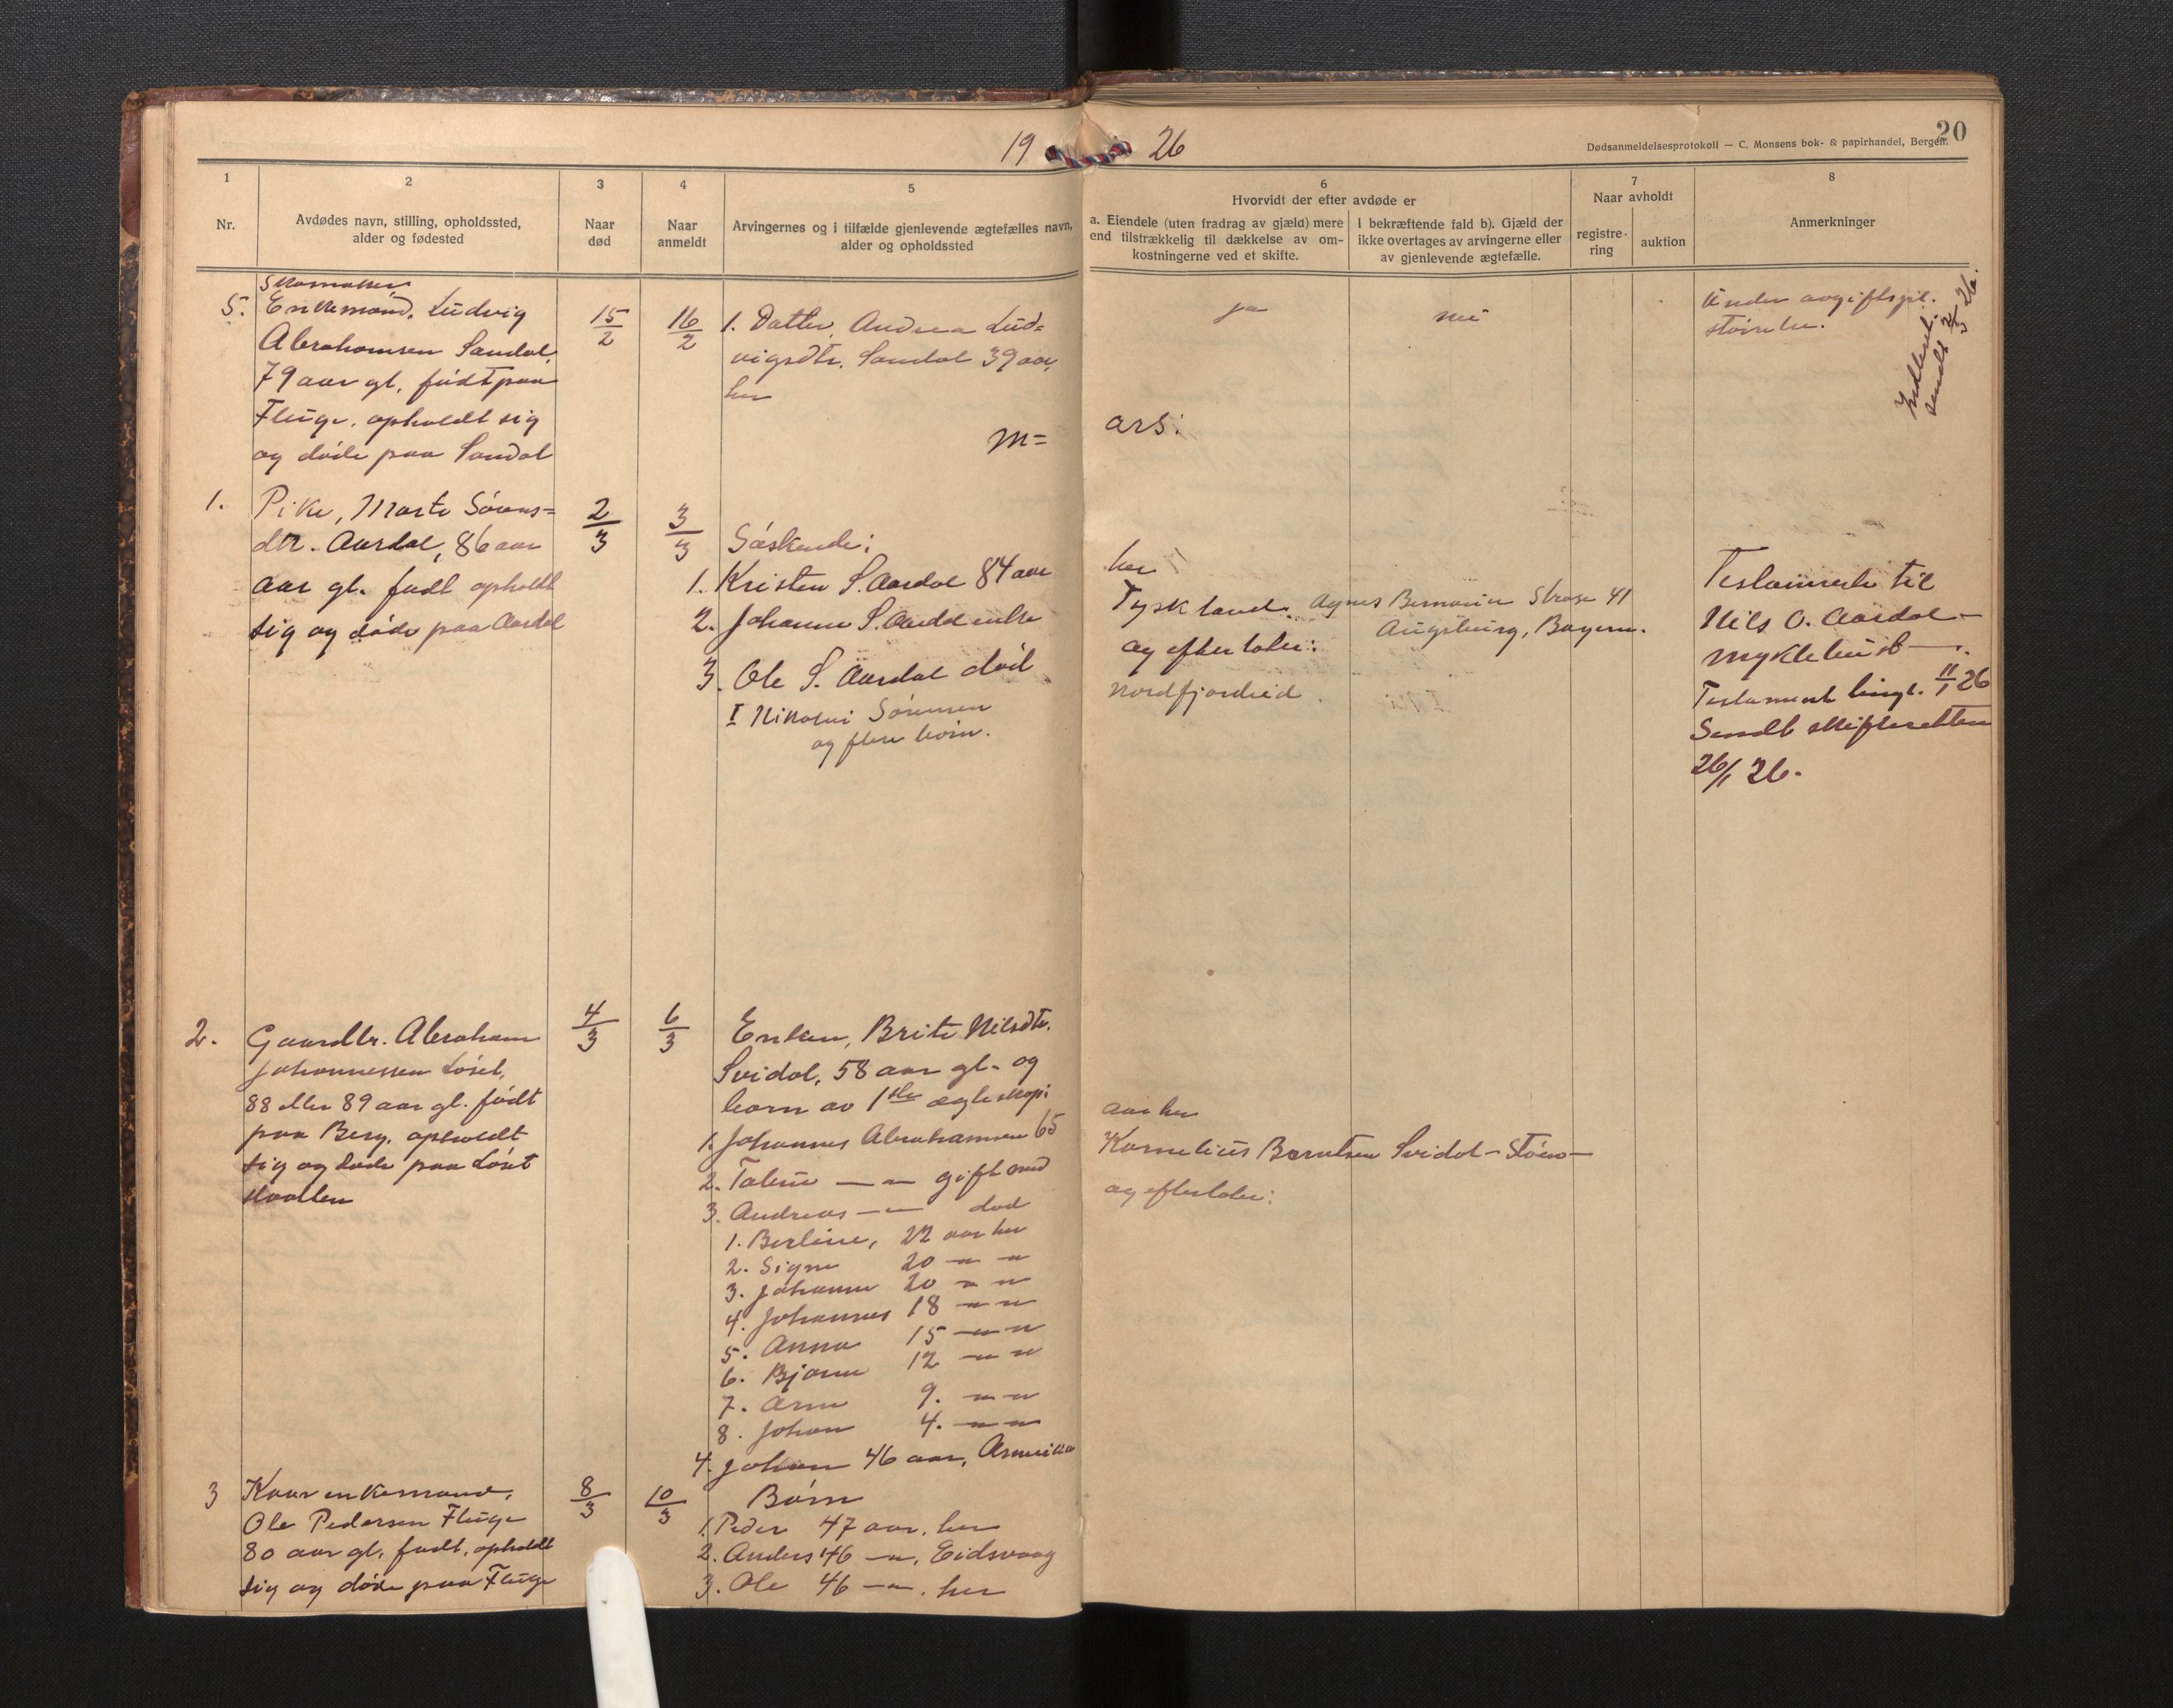 19 26
20
Dødsanmeldelsesprotokoll — C. Monsens bok- & papirhandel, Bergen.
1
Nr.
2
Avdødes navn, stilling, opholdssted,
alder og fødested
3
Naar
død
4
Naar
anmeldt
5
Arvingernes og i tilfælde gjenlevende ægtefælles navn,
alder og opholdssted
6
Hvorvidt der efter avdøde er
a. Eiendele (uten fradrag av gjæld) mere
end tilstrækkelig til dækkelse av om-
kostningerne ved et skifte.
I bekræftende fald b). Gjæld der
ikke overtages av arvingerne eller
av gjenlevende ægtefælle.
7
Naar avholdt
registre-
ring
auktion
8
Anmerkninger
Skomaker
5. Enkemand, Ludvig
Abrahamsen Sandal,
79 aar gl, født paa
Fluge, opholdt sig
og døde paa Sandal
15/2
16/2
1. Datter, Andrea Lud=
vigsdtr. Sandal 39 aar,
her
ja
nei
Under avgiftspl.
størrelse.
sendt 2/3 26.
M= ars:
1. Pike, Marte Sørens=
dtr. Aardal, 86 aar
aar gl. født opholdt
sig og døde paa Aardal
2/3
3/3
Søskende:
1. Kristen S. Aardal 84 aar
her
2. Johanne S. Aardal enke
Tyskland. Agnes Strase 41
Augsburg, Bayern.
3. Ole S. Aardal død
og efterlater:
I Nikolai Sørensen
Nordfjordeid
og flere børn.
Testamente til
Nils O. Aardal —
Myklebust —
Testament tingl. 11/1 26
Sendt skifteretten
26/1 26.
2. Gaardbr. Abraham
Johannessen Løset,
88 eller 89 aar gl. født
paa Berg, opholdt
sig og døde paa Løset
4/3
6/3
Enken, Brite Nilsdtr.
Svidal, 58 aar gl. og
barn av 1ste ægteskap:
1. Johannes Abrahamsen 65
aar her
2. Taline — " — gift med
Kornelius Berntsen Svidal — Støro —
3. Andreas — " — død
og efterlater:
1. Berline, 22 aar her
2. Signe 20 — " — "
3. Johanne 20 — " — "
4. Johannes 18 — " — "
5. Anna 15 — " — "
6. Bjarne 12 — " — "
7. Arne 9. — " — "
8. Johan 4. — " — "
4. Johan 46 aar, Amerika
3 Kaar enkemand,
Ole Pedersen Fluge
80 aar gl, født, opholdt
sig og døde paa Fluge
8/3
10/3
Børn
1. Peder 47 aar, her
2. Anders 46 — " —, Eidsvaag
3. Ole 46 — " —. her